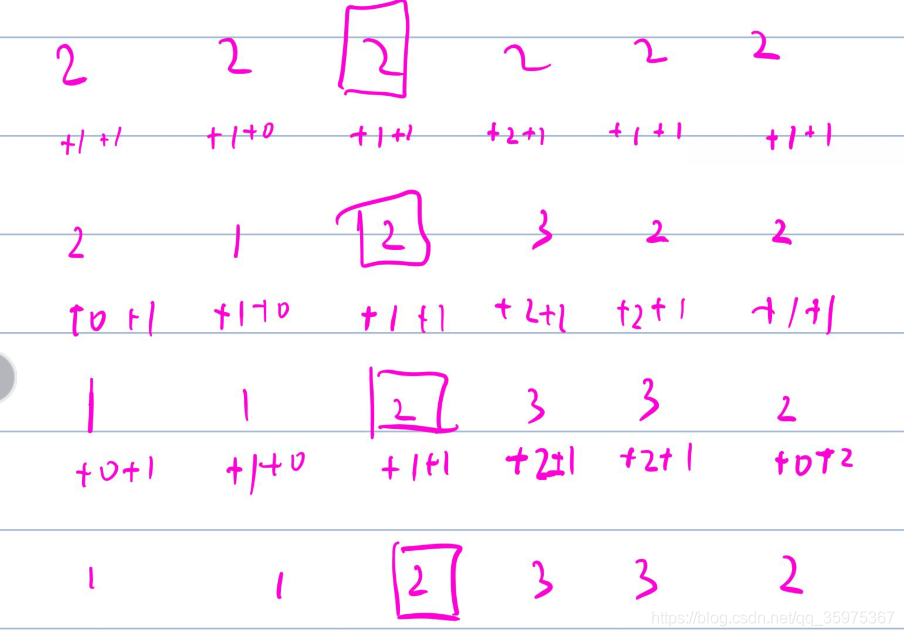 2 2 2 2 2 2
+1+1 +1+0 +1+1 +2+1 +1+1 +1+1
2 1 2 3 2 2
+0+1 +1+0 +1+1 +2+2 +2+1 +1+1
1 1 2 3 3 2
+0+1 +1+0 +1+1 +2+1 +2+1 +0+2
1 1 2 3 3 2
https://blog.csdn.net/qq_35975367